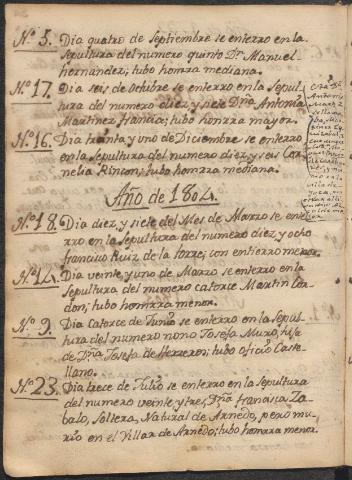 N.º 5. Dia quatro de Septiembre se enterro en la
sepultura del numero quinto Dn. Manuel
hernandez; tubo honrra mediana.
N.º 17. Dia seis de Octubre se enterro en la sepul-
tura del numero diez y siete Dña Antonia
Martinez francia; tubo honrra mayor.
N.º 16. Dia treinta y uno de Diciembre se enterro
en la sepultura del numero diez y seis Cor-
nelia Rincon; tubo honrra mediana.
Año de 1804.
N.º 18. Dia diez y siete del Mes de Marzo se ente-
rro en la sepultura del numero diez y ocho
francisco Ruiz de la torre; con entierro menor.
N.º 14. Dia veinte y uno de Marzo se enterro en la
Sepultura del numero catorce Martin Cor-
don; tubo honrra menor.
N.º 9. Dia catorce de Junio se enterro en la sepul-
tura del numero nono Josefa Muro, hija
de Dña Josefa de Herreros; tubo oficio Caste-
llano.
N.º 23. Dia trece de Julio se enterro en la sepultura
del numero veinte y tres, Dña francisca Za-
balo, soltera, Natural de Arnedo, pero mu-
rio en el Villar de Arnedo; tubo honrra menor.